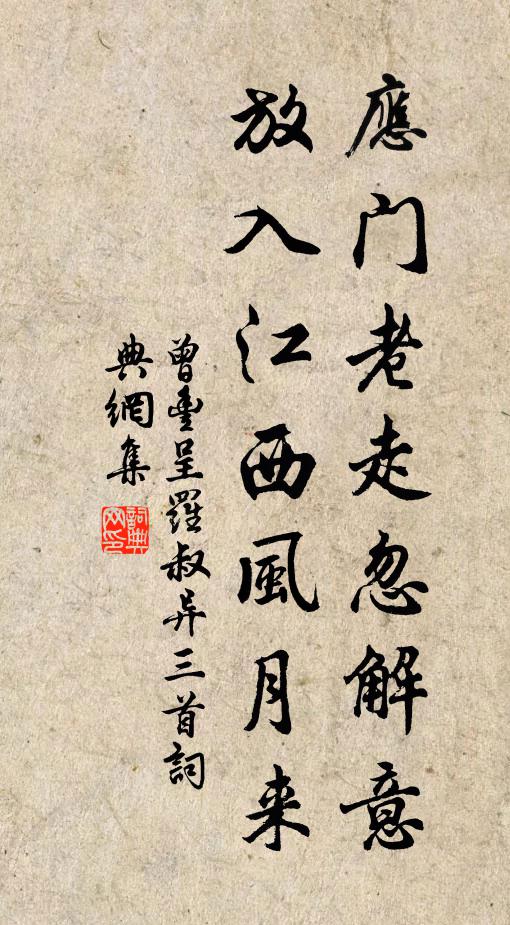 應門老走忽解意
放入江西風月来
曾豐呈羅叔异三首詞
典網集
詞典网印